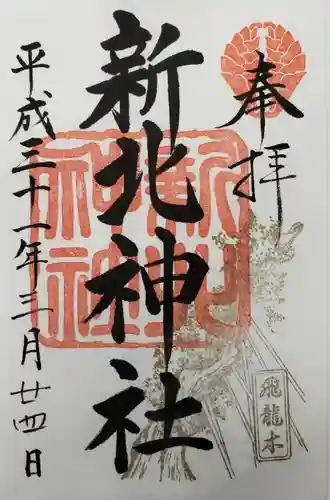 奉拝
新北神社
平成三十一年三月廿四日
飛龍木